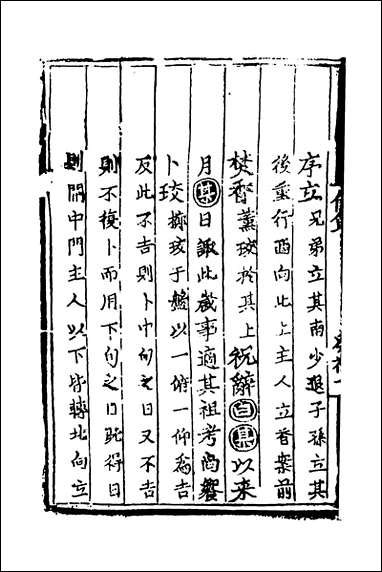 序立兄弟立其南少退子孫立其
後重行西向北上主人立香案前
焚香薰珓於其上祝辭曰某以來
月某日諏此歲事適其祖考尚饗
卜珓擲珓于盤以一俯一仰爲吉
反此不吉則卜中旬之日又不吉
則不復卜而用下旬之日既得日
則開中門主人以下皆轉北向立